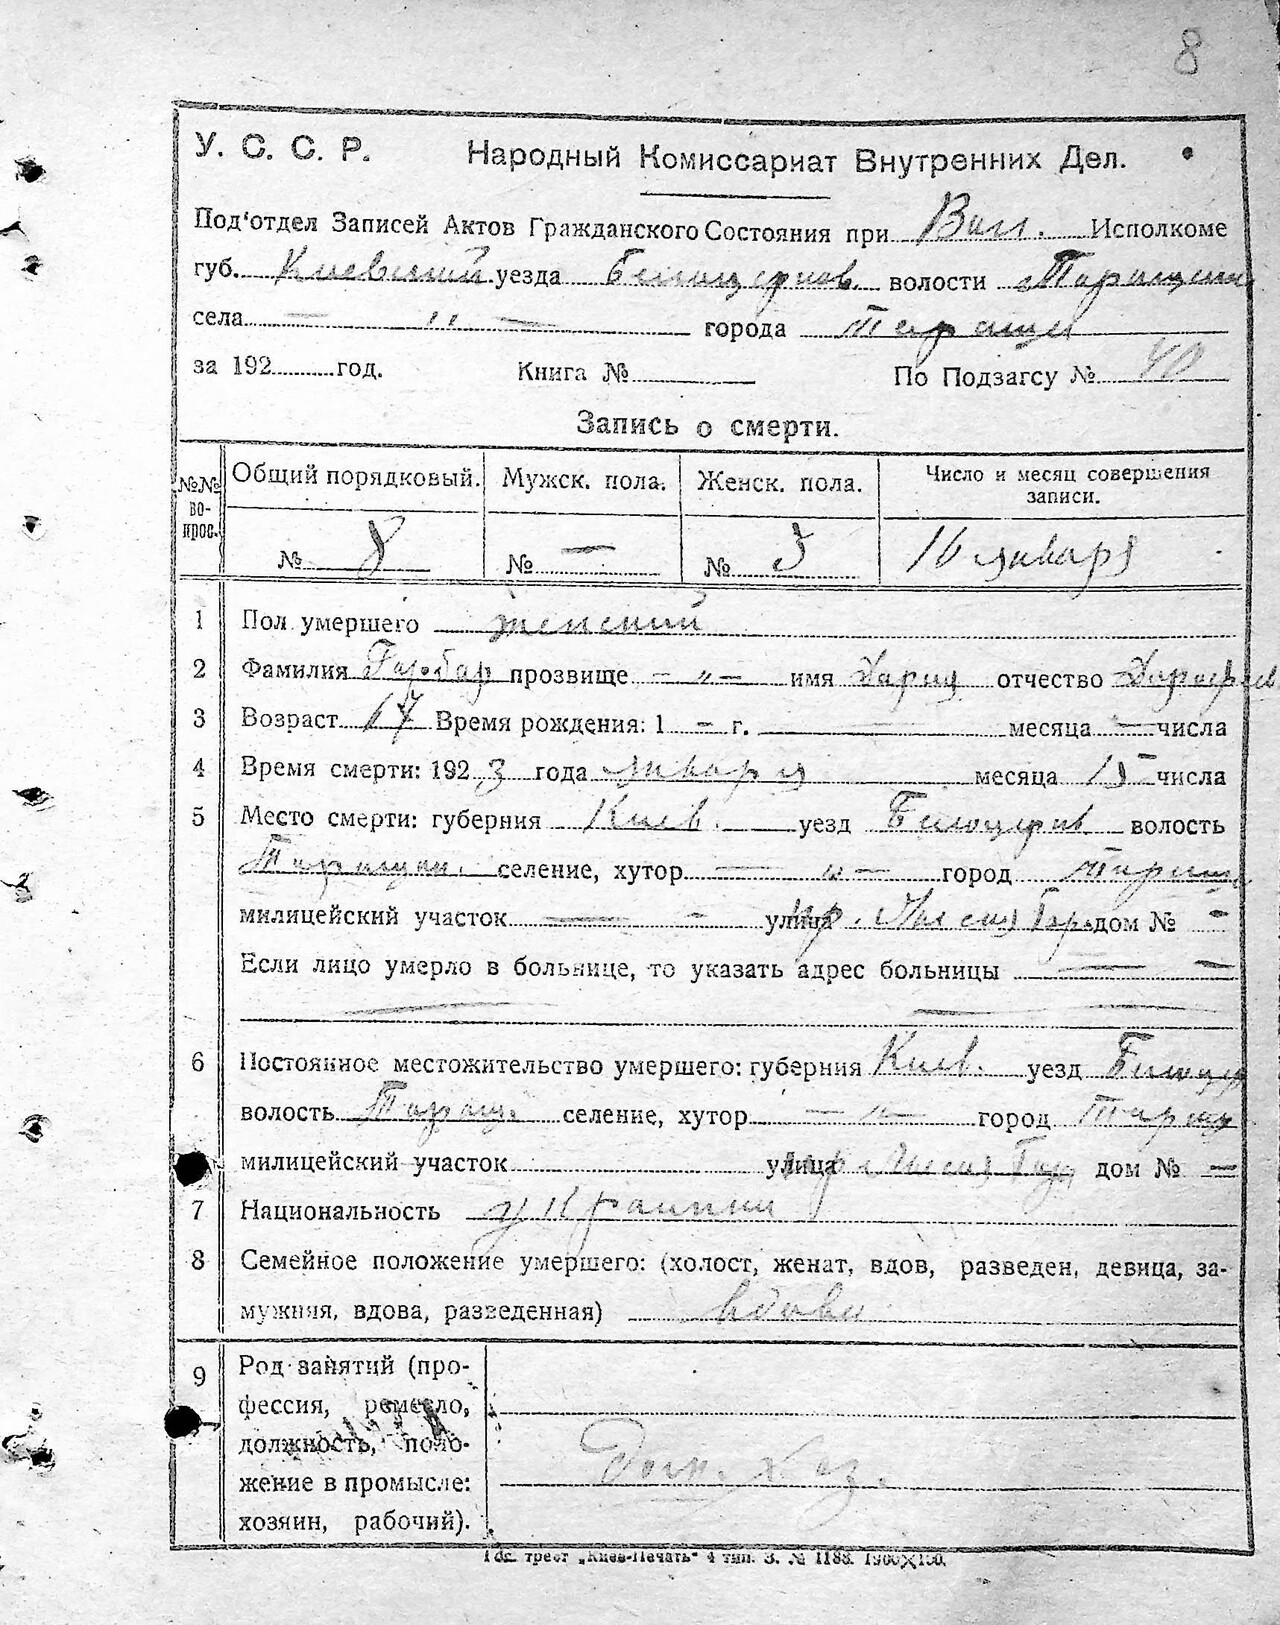 8
У. С. С. Р. Народный Комиссариат Внутренних Дел.
Под'отдел Записей Актов Гражданского Состояния при Вол. Исполкоме
губ. Киевский уезда Белоцерков. волости
села — " — города
за 192 год. Книга № По Подзагсу № 40
Запись о смерти.
№№ вопрос. Общий порядковый. Мужск. пола. Женск. пола. Число и месяц совершения записи.
№ 8 № — № 3 16 января
1 Пол умершего женский
2 Фамилия Гарбар прозвище — " — имя отчество
3 Возраст Время рождения: 1 — г. — месяца — числа
4 Время смерти: 1923 года января месяца 15 числа
5 Место смерти: губерния Киев. уезд Белоцерков волость
Таращан. селение, хутор — " — город
милицейский участок — - улица дом № -
Если лицо умерло в больнице, то указать адрес больницы — —
— —
6 Постоянное местожительство умершего: губерния Киев. уезд Белоцер
волость Таращ. селение, хутор — " — город
милицейский участок улица дом № —
7 Национальность
8 Семейное положение умершего: (холост, женат, вдов, разведен, девица, за-
мужняя, вдова, разведенная) вдова
9 Род занятий (про-
фессия, ремесло,
должность, поло-
жение в промысле:
хозяин, рабочий).
Дом. хоз.
трест „Киев-Печать" 4 тип. З. № 1188.